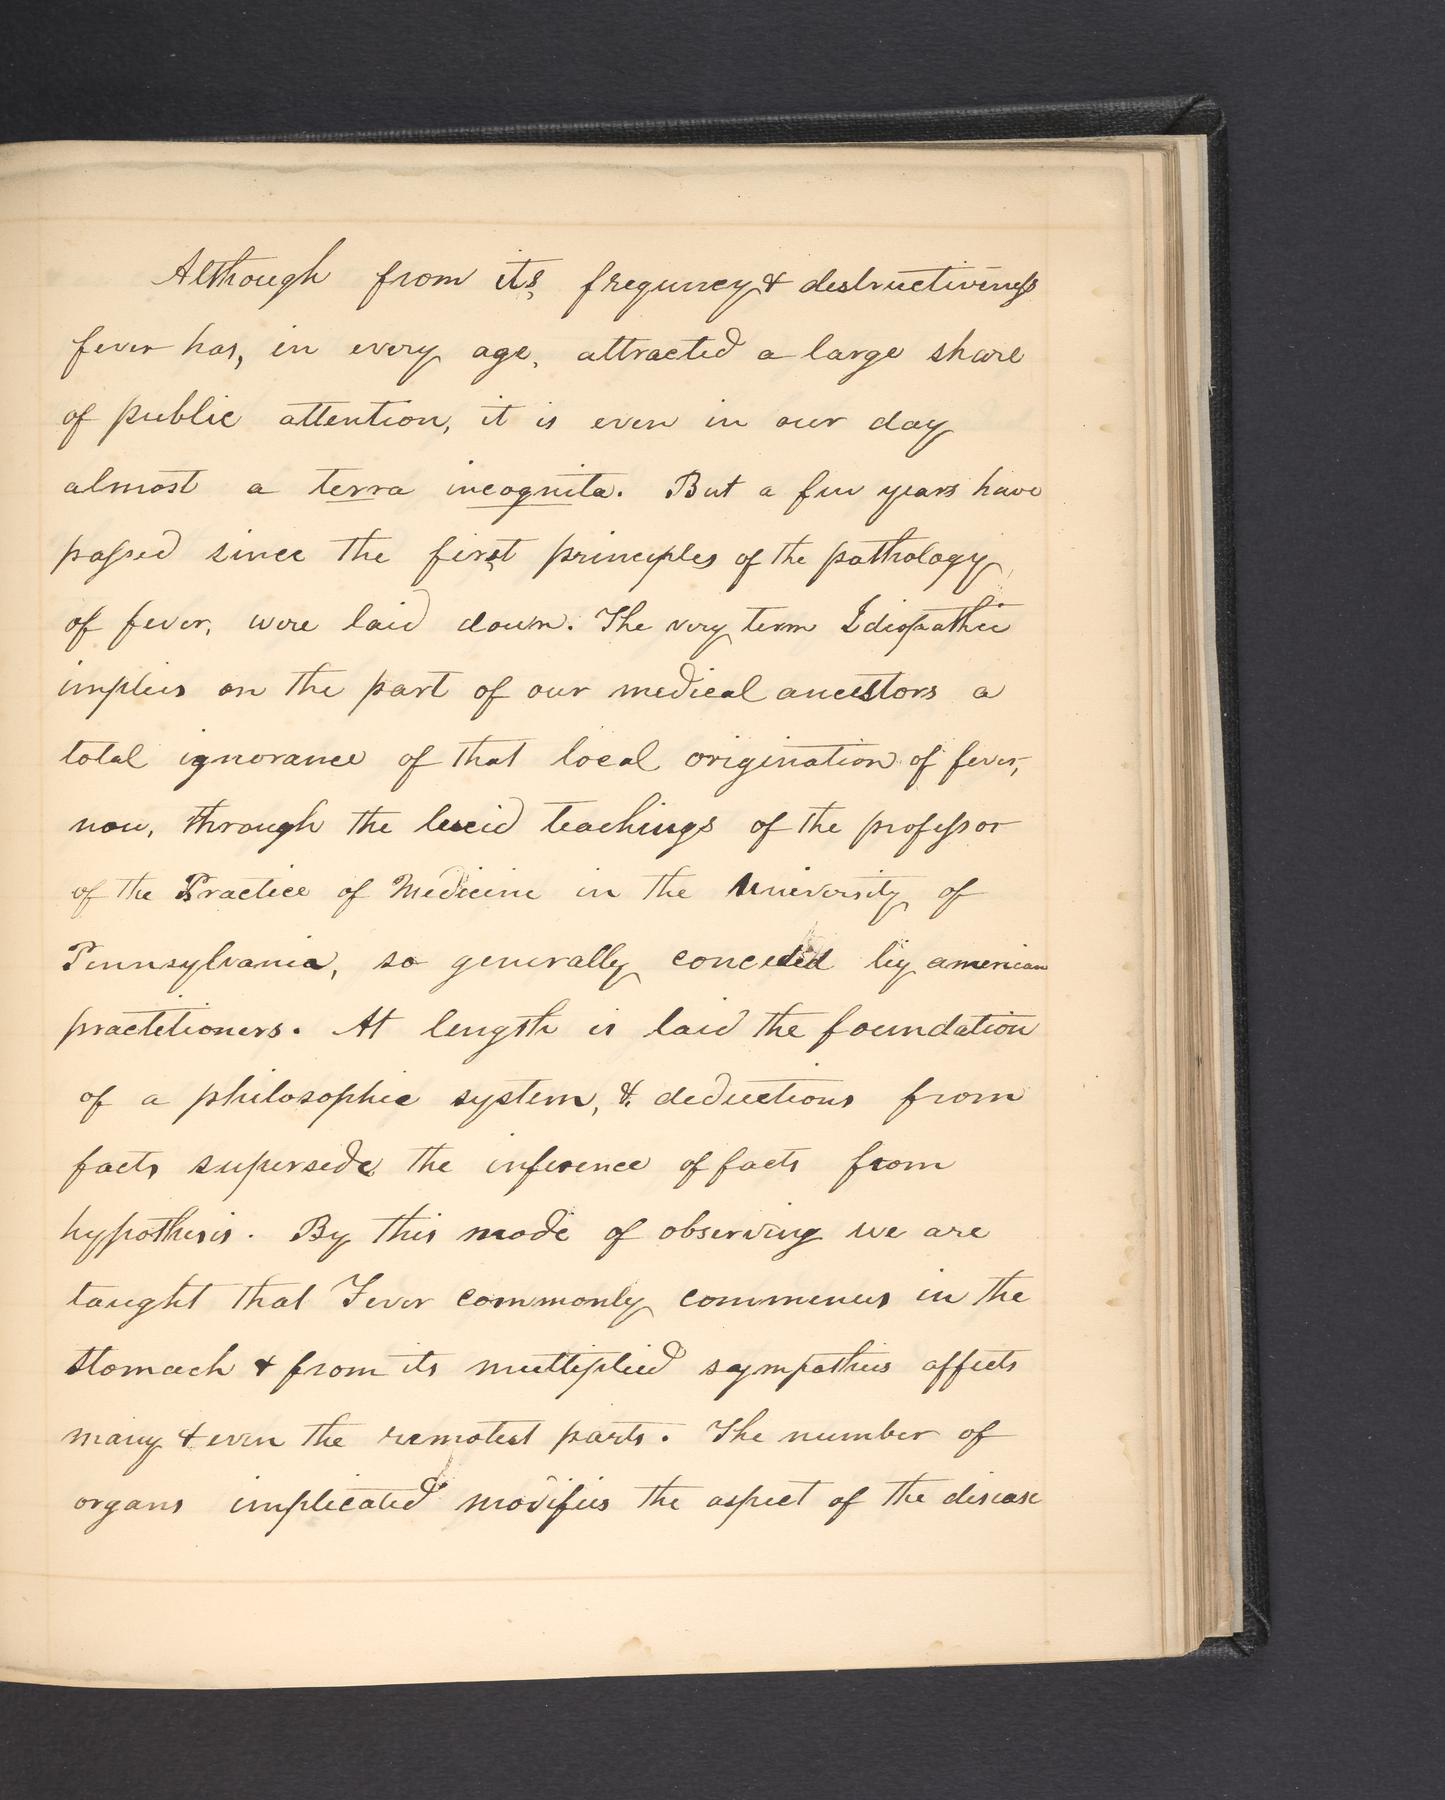 Although from its frequency & destructiveness
fever has, in every age, attracted a large share
of public attention, it is even in our day
almost a terra incognita. But a few years have
passed since the first principles of the pathology
of fever, were laid down. The very term Idiopathic
implies on the part of our medical ancestors a
total ignorance of that local origination of fever,
now, through the lucid teachings of the professor
of the Practice of Medicine in the University of
Pennsylvania, so generally conceded by american
practitioners. At length is laid the foundation
of a philosophic system, & deductions from
facts supersede the inference of facts from
hypothesis. By this mode of observing we are
taught that Fever commonly commences in the
stomach & from its multiplied sympathies affects
many & even the remotest parts. The number of
organs implicated modifies the aspect of the disease